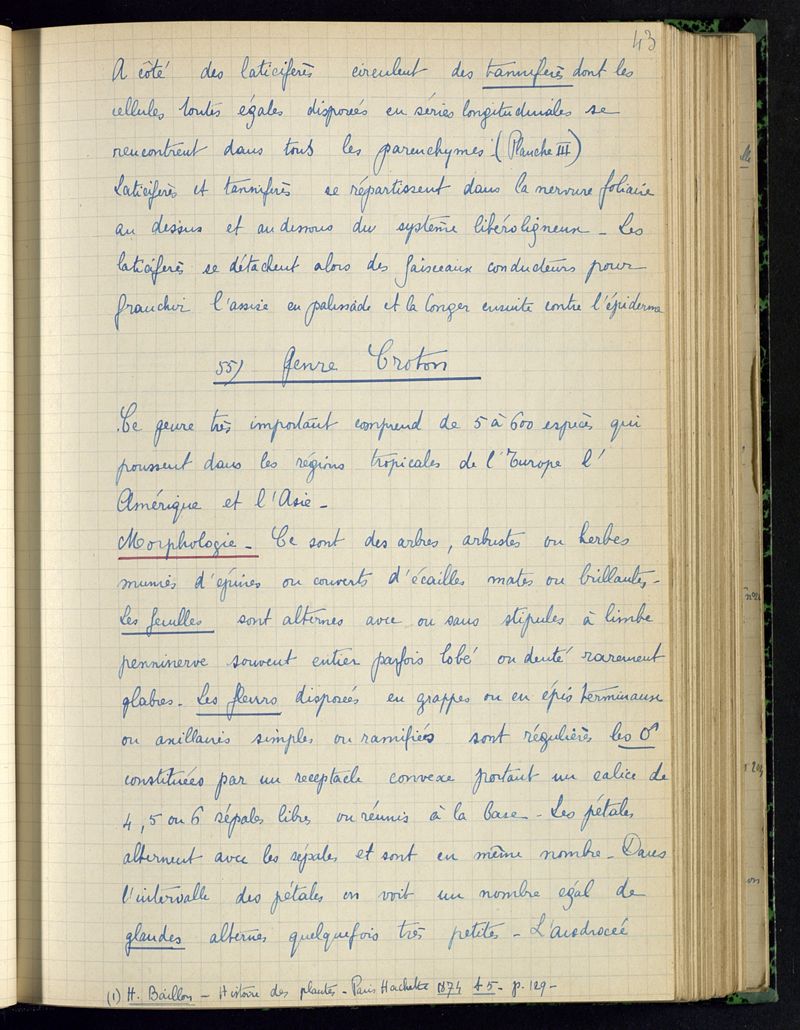 43
A côté des laticifères circulent des tannifères dont les
cellules toutes égales disposées en séries longitudinales se
rencontrent dans tous les parenchymes (Planche III)
Laticifères et tannifères se répartissent dans la nervure foliaire
au dessus et au dessous du système libéroligneux - Les
laticifères se détachent alors des faisceaux conducteurs pour
franchir l'assise en palissade et la longer ensuite contre l'épiderme
55) Genre Croton
Ce genre très important comprend de 5 à 600 espèces qui
poussent dans les régions tropicales de l'Europe l'
Amérique et l'Asie -
Morphologie - Ce sont des arbres, arbustes ou herbes
munies d'épines ou couverts d'écailles mates ou brillantes -
Les feuilles sont alternes avec ou sans stipules à limbe
penninerve souvent entier parfois lobé ou denté rarement
glabres - Les fleurs disposées en grappes ou en épis terminaux
ou axillaires simples ou ramifiées sont régulières les ♂
constituées par un receptacle convexe portant un calice de
4, 5 ou 6 sépales libres ou réunis à la base - Les pétales
alternent avec les sépales et sont en même nombre - Dans
l'intervalle des pétales on voit un nombre égal de
glandes alternes quelquefois très petites - L'androceé
(1) H. Baillon - Histoire des plantes - Paris Hachette 1874 t 5 - p. 129 -